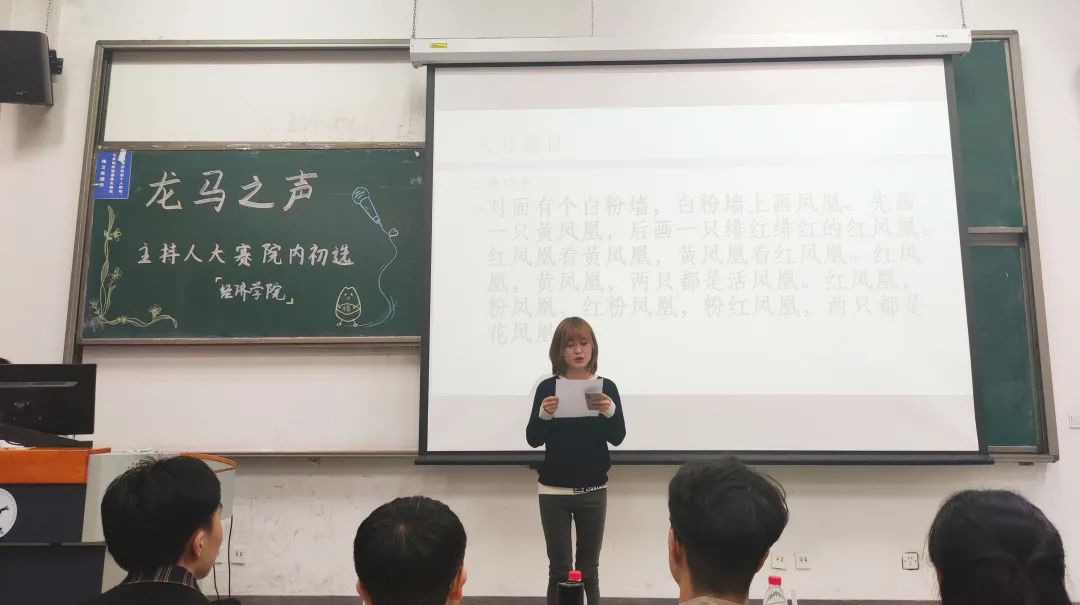 龙马之声
主持人大赛院内初选
「经济学院」
八号题目
绕口令
对面有个白粉墙，白粉墙上画凤凰。先画
一只黄凤凰，后画一只绯红绯红的红凤凰。
红凤凰看黄凤凰，黄凤凰看红凤凰。红凤
凰，黄凤凰，两只都是活凤凰。红凤凰，
粉凤凰，红粉凤凰，粉红凤凰，两只都是
花凤凰